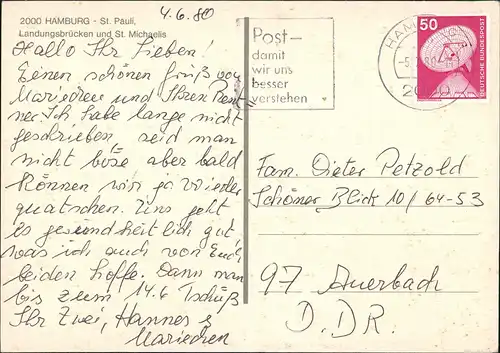 2000 HAMBURG - St. Pauli,
Landungsbrücken und St. Michaelis
4.6.80
Hallo Ihr Lieben!
Einen schönen Gruß von
Mariechen und Ihren Rent-
ner. Ich habe lange nicht
geschrieben seid man
nicht böse aber bald
können wir ja wieder
quatschen. Uns geht
es gesundheitlich gut
was ich auch von Euch
beiden hoffe. Dann man
bis zum 14.6 Tschüß
Ihr Zwei, Hannes &
Mariechen
Post-
damit
wir uns
besser
verstehen
HAMBURG
50
DEUTSCHE BUNDESPOST
Fam. Dieter Petzold
Schöner Blick 10/64-53
97 Auerbach
D.D.R.